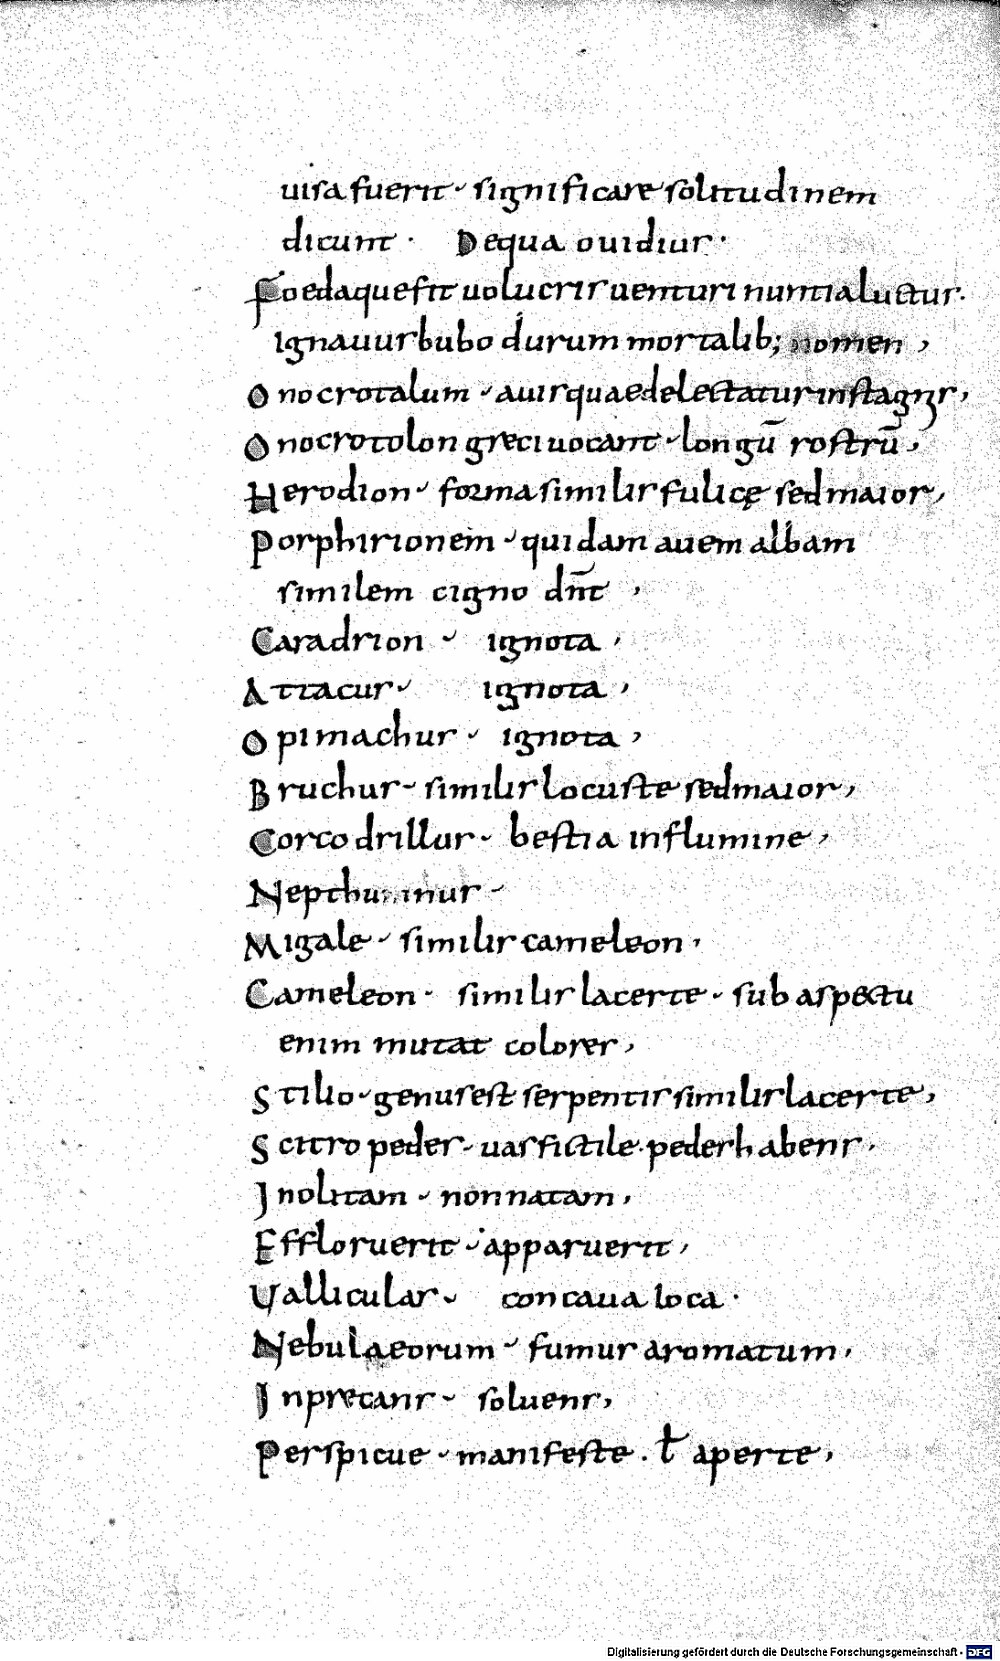 uisa fuerit significare solitudinem
dicunt · De qua ouidius ·
Foedaque fit uolucris uenturi nuntia luctus ·
ignauus bubo durum mortalib; nomen ,
Onocrotalum auis quae delectatur in stagnis ,
Onocrotolon greci uocant longū rostrū ,
Herodion forma similis fulicę sed maior ,
Porphirionem quidam auem albam
similem cigno dn̄t ,
Caradrion ignota ,
Attacus ignota ,
Opimachus ignota ,
Bruchus similis locuste sed maior ,
Corcodrillus bestia in flumine ,
Migale similis cameleon ,
Cameleon · similis lacerte · sub aspectu
enim mutat colores ,
Stilio genus est serpentis similis lacerte ,
Scitropedes uas fictile · pedes habens ·
Inolitam non natam ,
Effloruerit apparuerit ,
Ualliculas concaua loca ·
Nebulaeorum fumus aromatum ,
Inprecans soluens ,
Perspicue manifeste · ł aperte ,
Digitalisierung gefördert durch die Deutsche Forschungsgemeinschaft - DFG